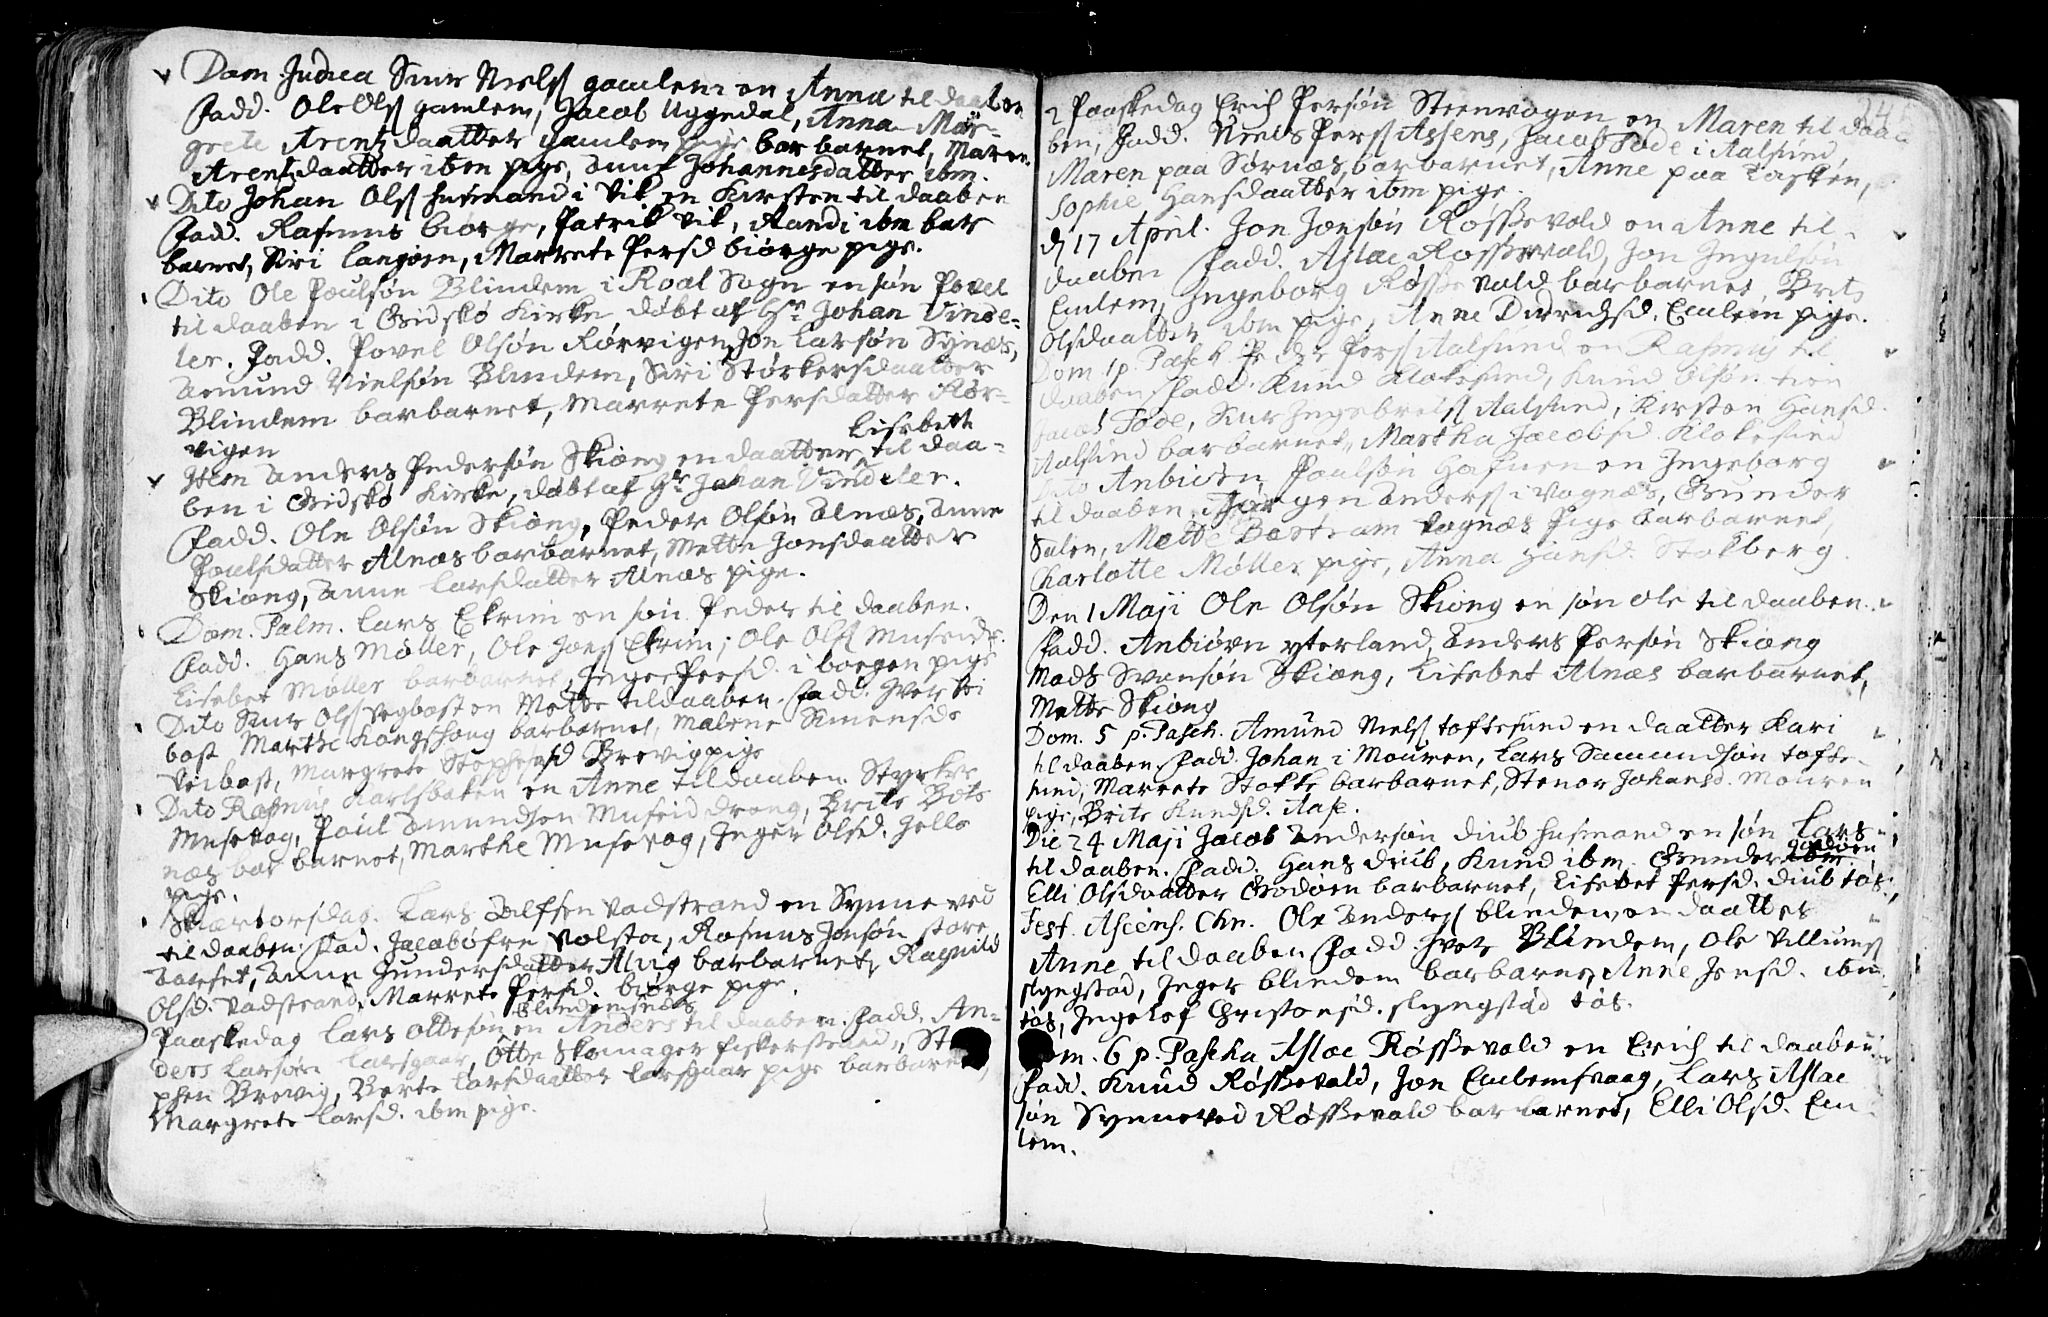 Dom. Judica Siur Niels∫ gamlem en Anna til daaben
Fadd. Ole Ols∫ gamlem, Jacob Uggedal, Anna Mar-
grete Arentzdaatter gamlem pige bar barnet, Maren
Arentzdaatter ibm pige, Anne Johannesdatter ibm.
Dito Johan Ols∫ husmand i Vik en Kirsten til daaben
Fadd. Rasmus biørge, Patrik Vik, Randi ibm bar
barnet, Siri langøen, Marrete Persd biørge pige.
Dito Ole Poulsøn Blindem i Roal Sogn en søn Povel
til daaben i Gidskø Kirke døbt af Hr Johan Vinde-
ler. Fadd. Povel Olsøn Rørvigen, Jon Larsøn Synnæs,
Amund Nielsøn Blindem, Siri Størkersdaatter
Blindem bar barnet, Marrete Persdatter Rør-
vigen
Lisebett
Item Anders Pedersøn Skiong en daatter til daa-
ben i Gidskø Kirke, døbt af Hr Johan Vindeler.
Fadd. Ole Olsøn Skiong, Peder Olsøn Alnæs, Anne
Poulsdatter Alnæs bar barnet, Mette Jonsdaatter
Skiong, Anne Larsdatter Alnæs pige.
Dom. Palm. Lars Ekrim en søn Peder til daaben.
Fadd. Hans Møller, Ole Jons∫ Ekrim, Ole Ols∫ Museid.
Lisebet Møller bar barnet, Inger Persd. i borgen pige
Dito Siur Ols∫ Vegbost en Mette til daaben. Fadd. Iver Vei
bost Marthe Kongshoug bar barnet, Malene Simensd.
Veibost, Margrete Stephensd Brevig pige
Dito Rasmus Karlsbaken en Anne til daaben Styrker
Musevog, Poul Amundsøn Museid dreng, Brite Bots
næs bar barnet, Marthe Musevog, Inger Olsd. Jells
pige.
Skiærtorsdag. Lars Zalfsen Vadstrand en Synneved
til daaben. Fad. Jacob øfre Volsta, Rasmus Jonsøn store
barset, Anne Gundersdatter Alvig bar barnet, Ragnild
Olsd. Vadstrand, Marrete Persd. biørge pige.
Blindemsnæs
Paaskedag Lars Ottesøn en Anders til daaben. Fadd. An-
ders Larsøn Larsgaar, Otte Skomager fiskerstrand, Ste
phen Brevig, Berte Larsdaatter Larsgaar pige bar barnet,
Margrete Larsd. ibm pige.
2 Paaskedag Erich Persøn Steenvogen en Maren til daa-
ben, Fadd. Niels Pers∫ Assens, Jacob Fode i Aalsund,
Maren paa Sørnæs bar barnet, Anne paa Tasken,
Sophie Hansdaatter ibm pige.
d 17 April. Jon Jonsøn Røssevold en Anne til
daaben Fadd. Aslac Røssevold, Jon Ingulsøn
Emlem, Ingeborg Røssevold bar barnet, Brite
Olsdaatter ibm pige, Anne Dirrichsd. Emlem pige.
Dom. 1 p. Pasch. Peder Pers∫ Aalsund en Rasmus til
daaben Fadd. Knud Klokesund, Knud Olsøn
Jacob Fode, Siur Ingebrets∫ Aalsund, Kirsten Hansd.
Aalsund bar barnet, Martha Jacobsd. Klokesund
Dito Anbiørn Poulsøn Hafnen en Ingeborg
til daaben, Jørgen Anders∫ i Vognæs, Gunder
Sulen, Mette Bostrøm Vognæs pige bar barnet,
Charlotte Møller pige, Anna Hansd. Stokberg.
Den 1 Maji Ole Olsøn Skiong en søn Ole til daaben.
Fadd. Anbiørn yterland, Anders Persøn Skiong
Mads Svensøn Skiong, Lisebet Alnæs bar barnet,
Mette Skiong
Dom. 5 p. Pasch. Amund Niels∫ toftesund en daatter Kari
til daaben. Fadd. Johan i Mouren, Lars Samundsøn tofte-
sund, Marrete Stokke bar barnet, Stenor Johansd. Mouren
pige, Brite Knudsd. Aase.
Die 24 Maji Jacob Andersøn diub husmand en søn Lars
til daaben. Fadd. Hans diub, Knud ibm. Gunder ibm. Godøen
Elli Olsdaatter Godøen bar barnet, Lisebet Persd. diub tøs.
Fest. Ascens. Chr. Ole Anders∫ blindem, en daatter
Anne til daaben Fadd. Iver Blindem, Ole Villums∫
slyngstad, Inger blindem bar barnet, Anne Jensd. ibm
tøs, Ingelof Christensd. slyngstad tøs.
Dom. 6 p. Pascha Aslac Røssevold en Erich til daaben
Fadd. Knud Røssevold, Jon Emlemsvaag, Lars Aslac
søn Synneved Røssevold bar barnet, Elli Olsd. Em-
lem.